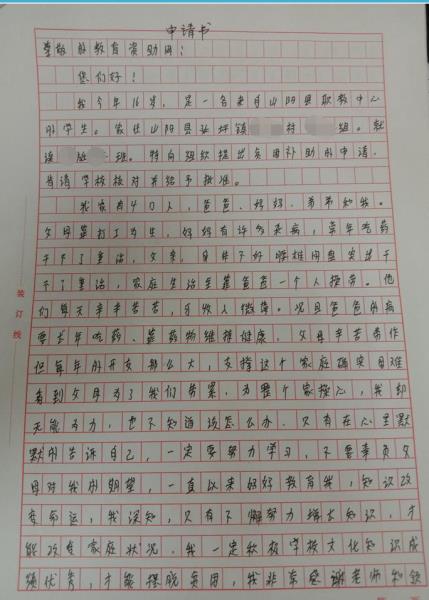 申请书
尊敬的教育资助网：
您们好！
我今年16岁，是一名来自山阳县职教中心
的学生。家住山阳县 坪镇 村 组。就
读 班。特向组织提出贫困补助的申请，
肯请学校核对并给予批准。
我家有4口人，爸爸、妈妈、弟弟和我。
父母靠打工为生，妈妈有许多杂病，常年吃药
干不了重活，父亲，身体不好腰椎间盘突出干
不了重活，家庭生活全靠爸爸一个人操劳。他
们每天辛辛苦苦，只收入微薄。况且爸爸的病
要长年吃药、靠药物维持健康，父母辛苦劳作
但每年的开支那么大，支撑这个家庭确实困难
看到父母为了我们劳累，为整个家操心，我却
无能为力，也不知道该怎么办，只有在心里默
默的告诉自己，一定要努力学习，不要辜负父
母对我的期望，一直以来好好教育我，知识改
变命运，我深知，只有不懈努力 知识，才
能改变家庭状况，我一定积极学校文化知识成
绩优秀，才能摆脱贫困，我非常感谢老师和领
装订线